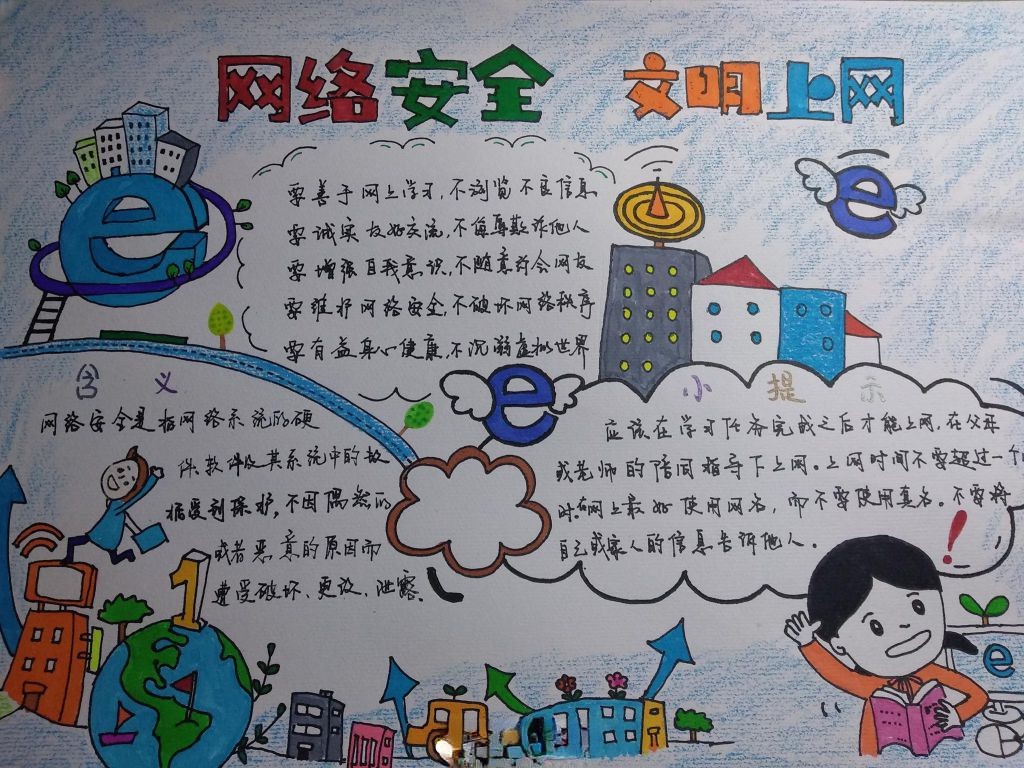 网络安全 文明上网
要善于网上学习,不浏览不良信息
要诚实友好交流,不侮辱欺诈他人
要增强自我意识,不随意约会网友
要维护网络安全,不破坏网络秩序
要有益身心健康,不沉溺虚拟世界
含义
网络安全是指网络系统的硬
件软件及其系统中的数
据受到保护,不因偶然的
或者恶意的原因而
遭受破坏、更改、泄露.
小提示
应该在学习任务完成之后才能上网,在父母
或老师的陪同指导下上网。上网时间不要超过一个
时.在网上最好使用网名,而不要使用真名。不要将
自己或家人的信息告诉他人.
e
e
e
e
1
!